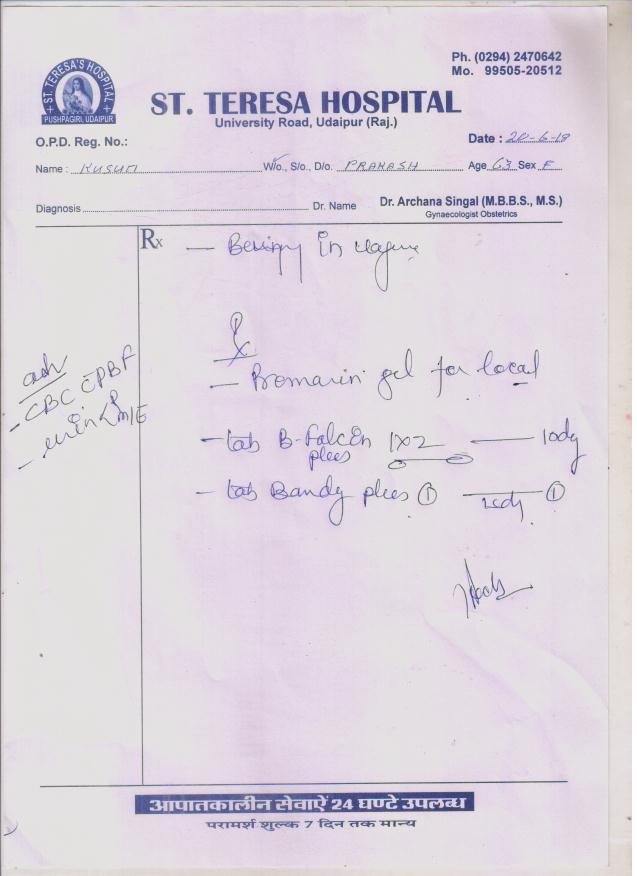 ST. TERESA'S HOSPITAL
PUSHPAGIRI, UDAIPUR
Ph. (0294) 2470642
Mo. 99505-20512
ST. TERESA HOSPITAL
University Road, Udaipur (Raj.)
O.P.D. Reg. No.:
Date : 20-6-18
Name : KUSUM W/o., S/o., D/o. PRAKASH Age 63 Sex F
Diagnosis Dr. Name Dr. Archana Singal (M.B.B.S., M.S.)
Gynaecologist Obstetrics
Rx
— in
Rx
— gel for local
— tab B-Falcen 1x2 — 10dy
plees
— tab Bandy plees ① — ①
adv
- CBC CPBF
- M/E
आपातकालीन सेवाऐं 24 घण्टे उपलब्ध
परामर्श शुल्क 7 दिन तक मान्य